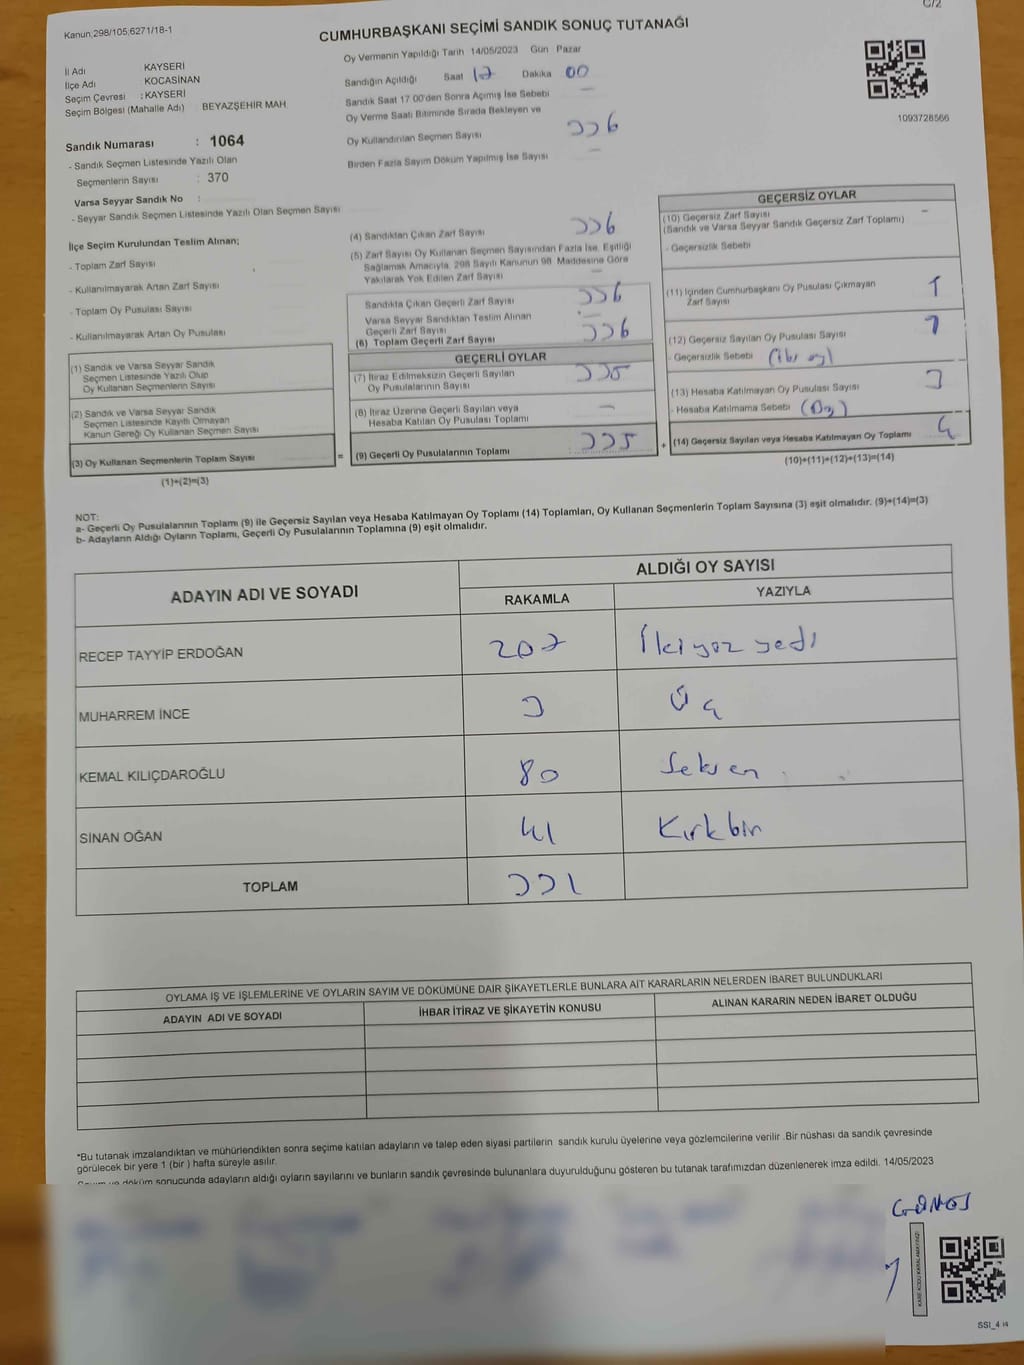 C/2
Kanun;298/105;6271/18-1
CUMHURBAŞKANI SEÇİMİ SANDIK SONUÇ TUTANAĞI
Oy Vermenin Yapıldığı Tarih 14/05/2023 Gün Pazar
İl Adı KAYSERİ
İlçe Adı KOCASİNAN
Seçim Çevresi : KAYSERİ
Seçim Bölgesi (Mahalle Adı) BEYAZŞEHİR MAH
Sandık Numarası : 1064
- Sandık Seçmen Listesinde Yazılı Olan
Seçmenlerin Sayısı : 370
Varsa Seyyar Sandık No :
- Seyyar Sandık Seçmen Listesinde Yazılı Olan Seçmen Sayısı
Sandığın Açıldığı Saat 17 Dakika 00
Sandık Saat 17 00'den Sonra Açımış İse Sebebi —
Oy Verme Saati Bitiminde Sırada Bekleyen ve
Oy Kullandırılan Seçmen Sayısı 336
Birden Fazla Sayım Döküm Yapılmış İse Sayısı —
1093728566
İlçe Seçim Kurulundan Teslim Alınan;
- Toplam Zarf Sayısı
- Kullanılmayarak Artan Zarf Sayısı
- Toplam Oy Pusulası Sayısı
- Kullanılmayarak Artan Oy Pusulası
(1) Sandık ve Varsa Seyyar Sandık
Seçmen Listesinde Yazılı Olup
Oy Kullanan Seçmenlerin Sayısı
(2) Sandık ve Varsa Seyyar Sandık
Seçmen Listesinde Kayıtlı Olmayan
Kanun Gereği Oy Kullanan Seçmen Sayısı
(3) Oy Kullanan Seçmenlerin Toplam Sayısı
(1)+(2)=(3)
(4) Sandıktan Çıkan Zarf Sayısı 336
(5) Zarf Sayısı Oy Kullanan Seçmen Sayısından Fazla İse, Eşitliği
Sağlamak Amacıyla, 298 Sayılı Kanunun 98. Maddesine Göre
Yakılarak Yok Edilen Zarf Sayısı —
Sandıkta Çıkan Geçerli Zarf Sayısı 336
Varsa Seyyar Sandıktan Teslim Alınan
Geçerli Zarf Sayısı —
(6) Toplam Geçerli Zarf Sayısı 336
GEÇERLİ OYLAR
(7) İtiraz Edilmeksizin Geçerli Sayılan
Oy Pusulalarının Sayısı 335
(8) İtiraz Üzerine Geçerli Sayılan veya
Hesaba Katılan Oy Pusulası Toplamı —
= (9) Geçerli Oy Pusulalarının Toplamı 335 +
GEÇERSİZ OYLAR
(10) Geçersiz Zarf Sayısı —
(Sandık ve Varsa Seyyar Sandık Geçersiz Zarf Toplamı)
- Geçersizlik Sebebi
(11) İçinden Cumhurbaşkanı Oy Pusulası Çıkmayan
Zarf Sayısı 1
(12) Geçersiz Sayılan Oy Pusulası Sayısı 1
- Geçersizlik Sebebi
(13) Hesaba Katılmayan Oy Pusulası Sayısı 3
- Hesaba Katılmama Sebebi
(14) Geçersiz Sayılan veya Hesaba Katılmayan Oy Toplamı 4
(10)+(11)+(12)+(13)=(14)
NOT:
a- Geçerli Oy Pusulalarının Toplamı (9) ile Geçersiz Sayılan veya Hesaba Katılmayan Oy Toplamı (14) Toplamları, Oy Kullanan Seçmenlerin Toplam Sayısına (3) eşit olmalıdır. (9)+(14)=(3)
b- Adayların Aldığı Oyların Toplamı, Geçerli Oy Pusulalarının Toplamına (9) eşit olmalıdır.
ADAYIN ADI VE SOYADI ALDIĞI OY SAYISI
RAKAMLA YAZIYLA
RECEP TAYYİP ERDOĞAN 207 İkiyüz yedi
MUHARREM İNCE 3 Üç
KEMAL KILIÇDAROĞLU 80 Seksen
SİNAN OĞAN 41 Kırkbir
TOPLAM 331
OYLAMA İŞ VE İŞLEMLERİNE VE OYLARIN SAYIM VE DÖKÜMÜNE DAİR ŞİKAYETLERLE BUNLARA AİT KARARLARIN NELERDEN İBARET BULUNDUKLARI
ADAYIN ADI VE SOYADI İHBAR İTİRAZ VE ŞİKAYETİN KONUSU ALINAN KARARIN NEDEN İBARET OLDUĞU
*Bu tutanak imzalandıktan ve mühürlendikten sonra seçime katılan adayların ve talep eden siyasi partilerin sandık kurulu üyelerine veya gözlemcilerine verilir .Bir nüshası da sandık çevresinde
görülecek bir yere 1 (bir ) hafta süreyle asılır.
Sayım ve döküm sonucunda adayların aldığı oyların sayılarını ve bunların sandık çevresinde bulunanlara duyurulduğunu gösteren bu tutanak tarafımızdan düzenlenerek imza edildi. 14/05/2023
SSI_4